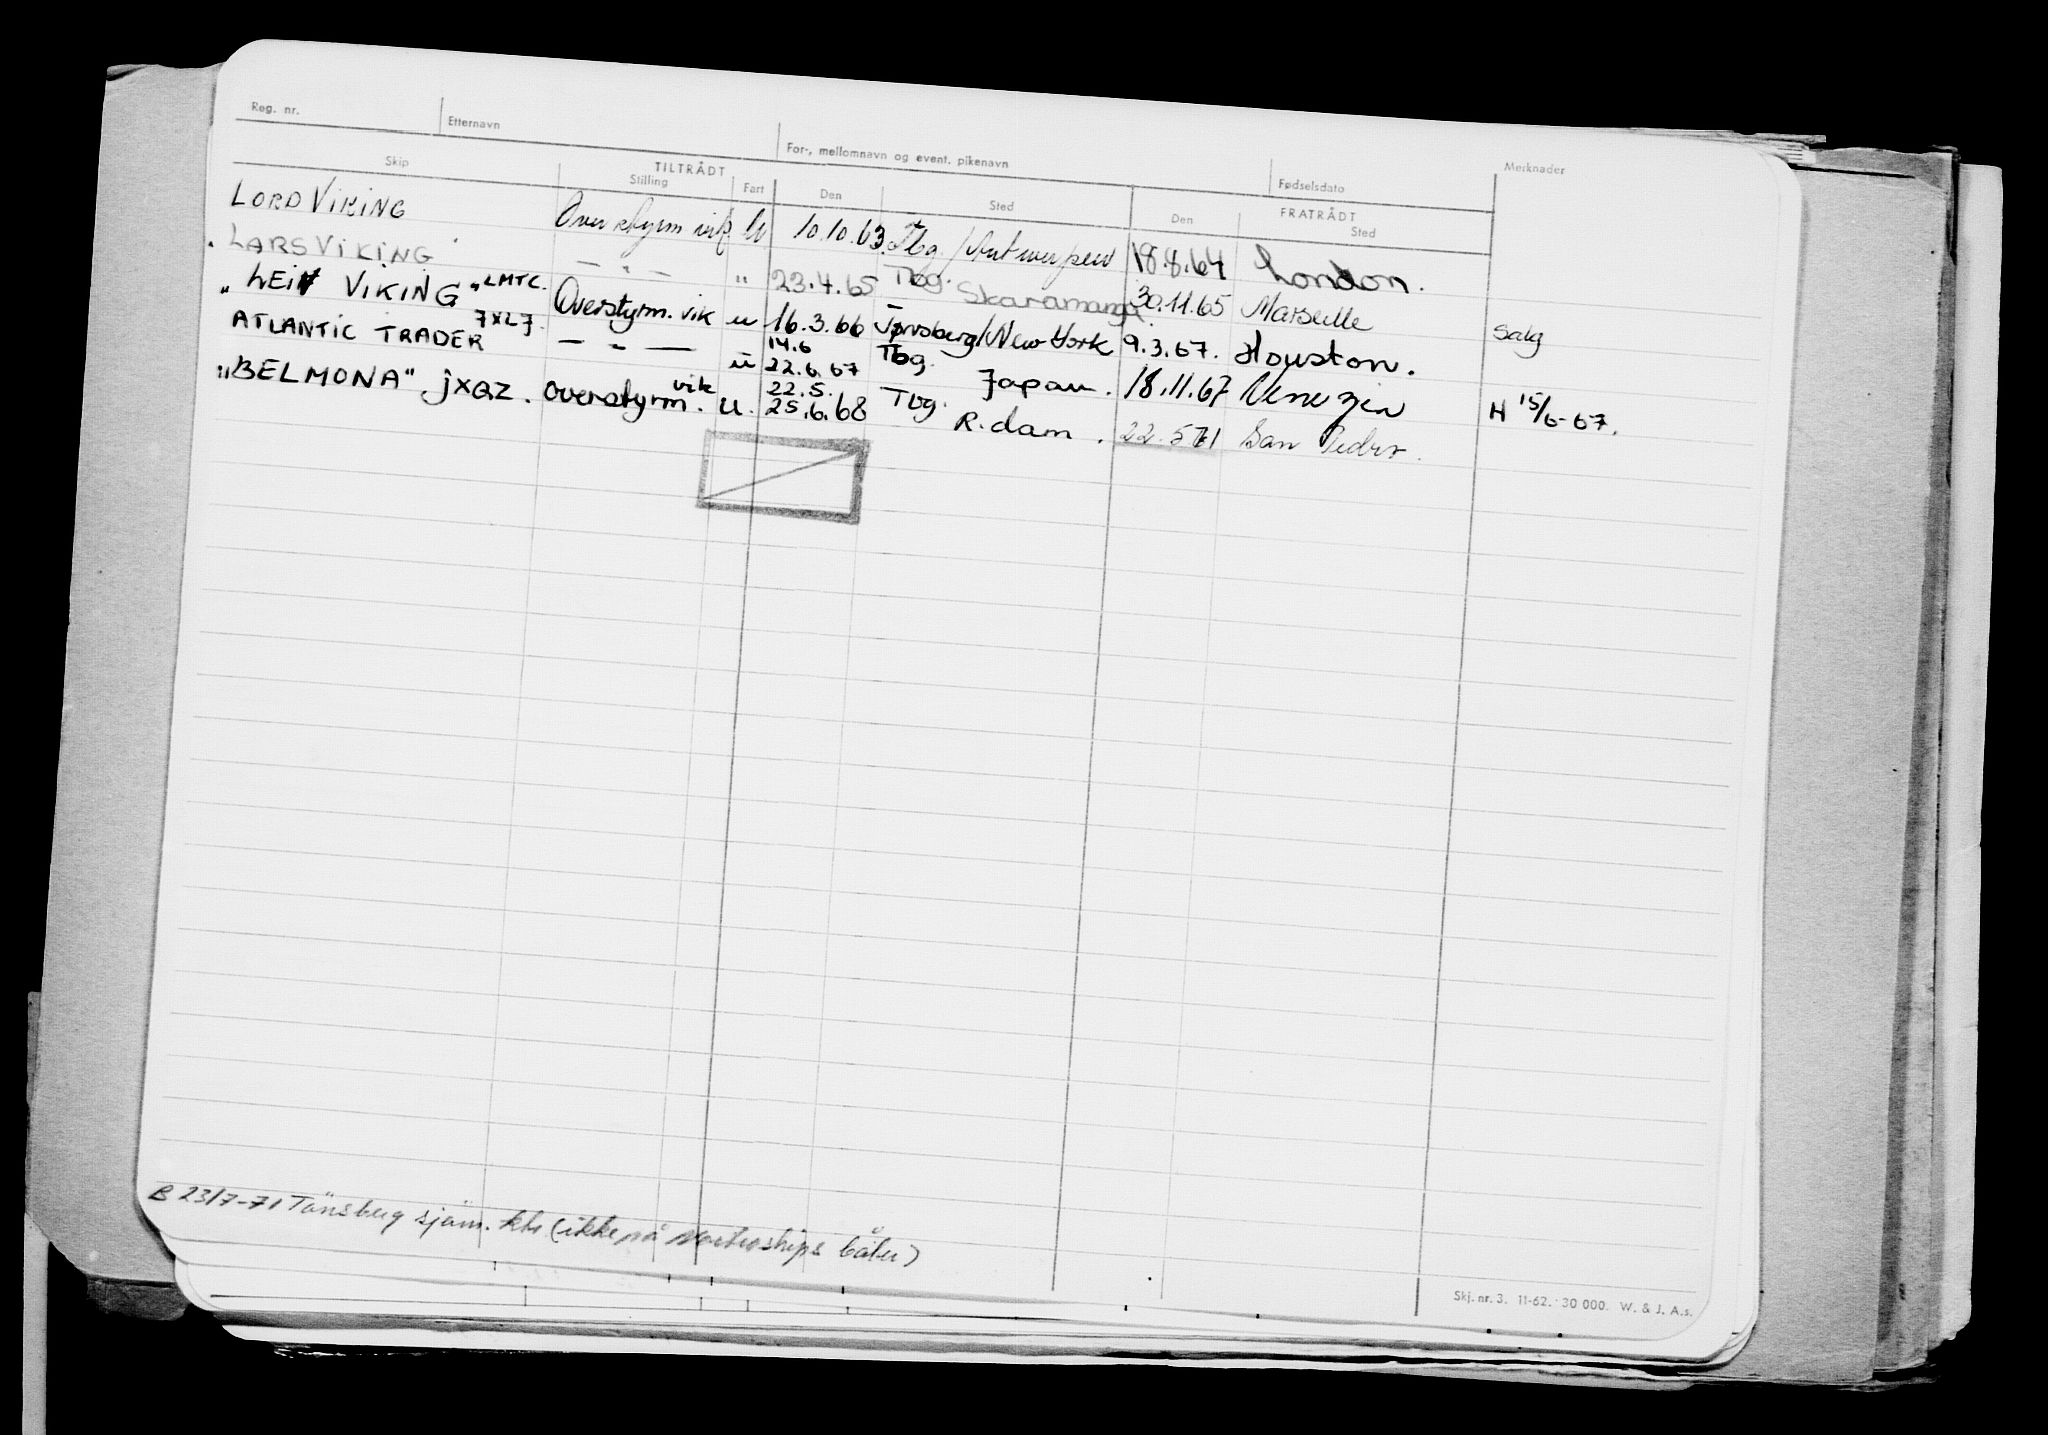 Reg. nr. Etternavn For-, mellomnavn og event. pikenavn Fødselsdato Merknader
Skip TILTRÅDT Stilling Fart Den Sted FRATRÅDT Den Sted
LORD VIKING Overstyrm vik U 10.10.63. Tbg. / Antwerpen 18.8.64 London.
LARS VIKING — " — " 23.4.65 Tbg. Skaramanga 30.11.65 Marseille salg
"LEIV VIKING" LMTC. Overstyrm. vik u 16.3.66 Tønsberg/New York 9.3.67. Houston.
ATLANTIC TRADER JXLJ. — " — u 14.6 22.6.67 Tbg. Japan. 18.11.67 Venezia H 15/6-67.
"BELMONA" JXQZ. Overstyrm. vik u. 22.5. 25.6.68 Tbg. R.dam. 22.5 71 San Pedro.
B 23/7-71 Tönsberg sjöm. ktr (ikke på Nortraships båter)
Skj. nr. 3. 11-62. 30 000. W. & J. A.s.